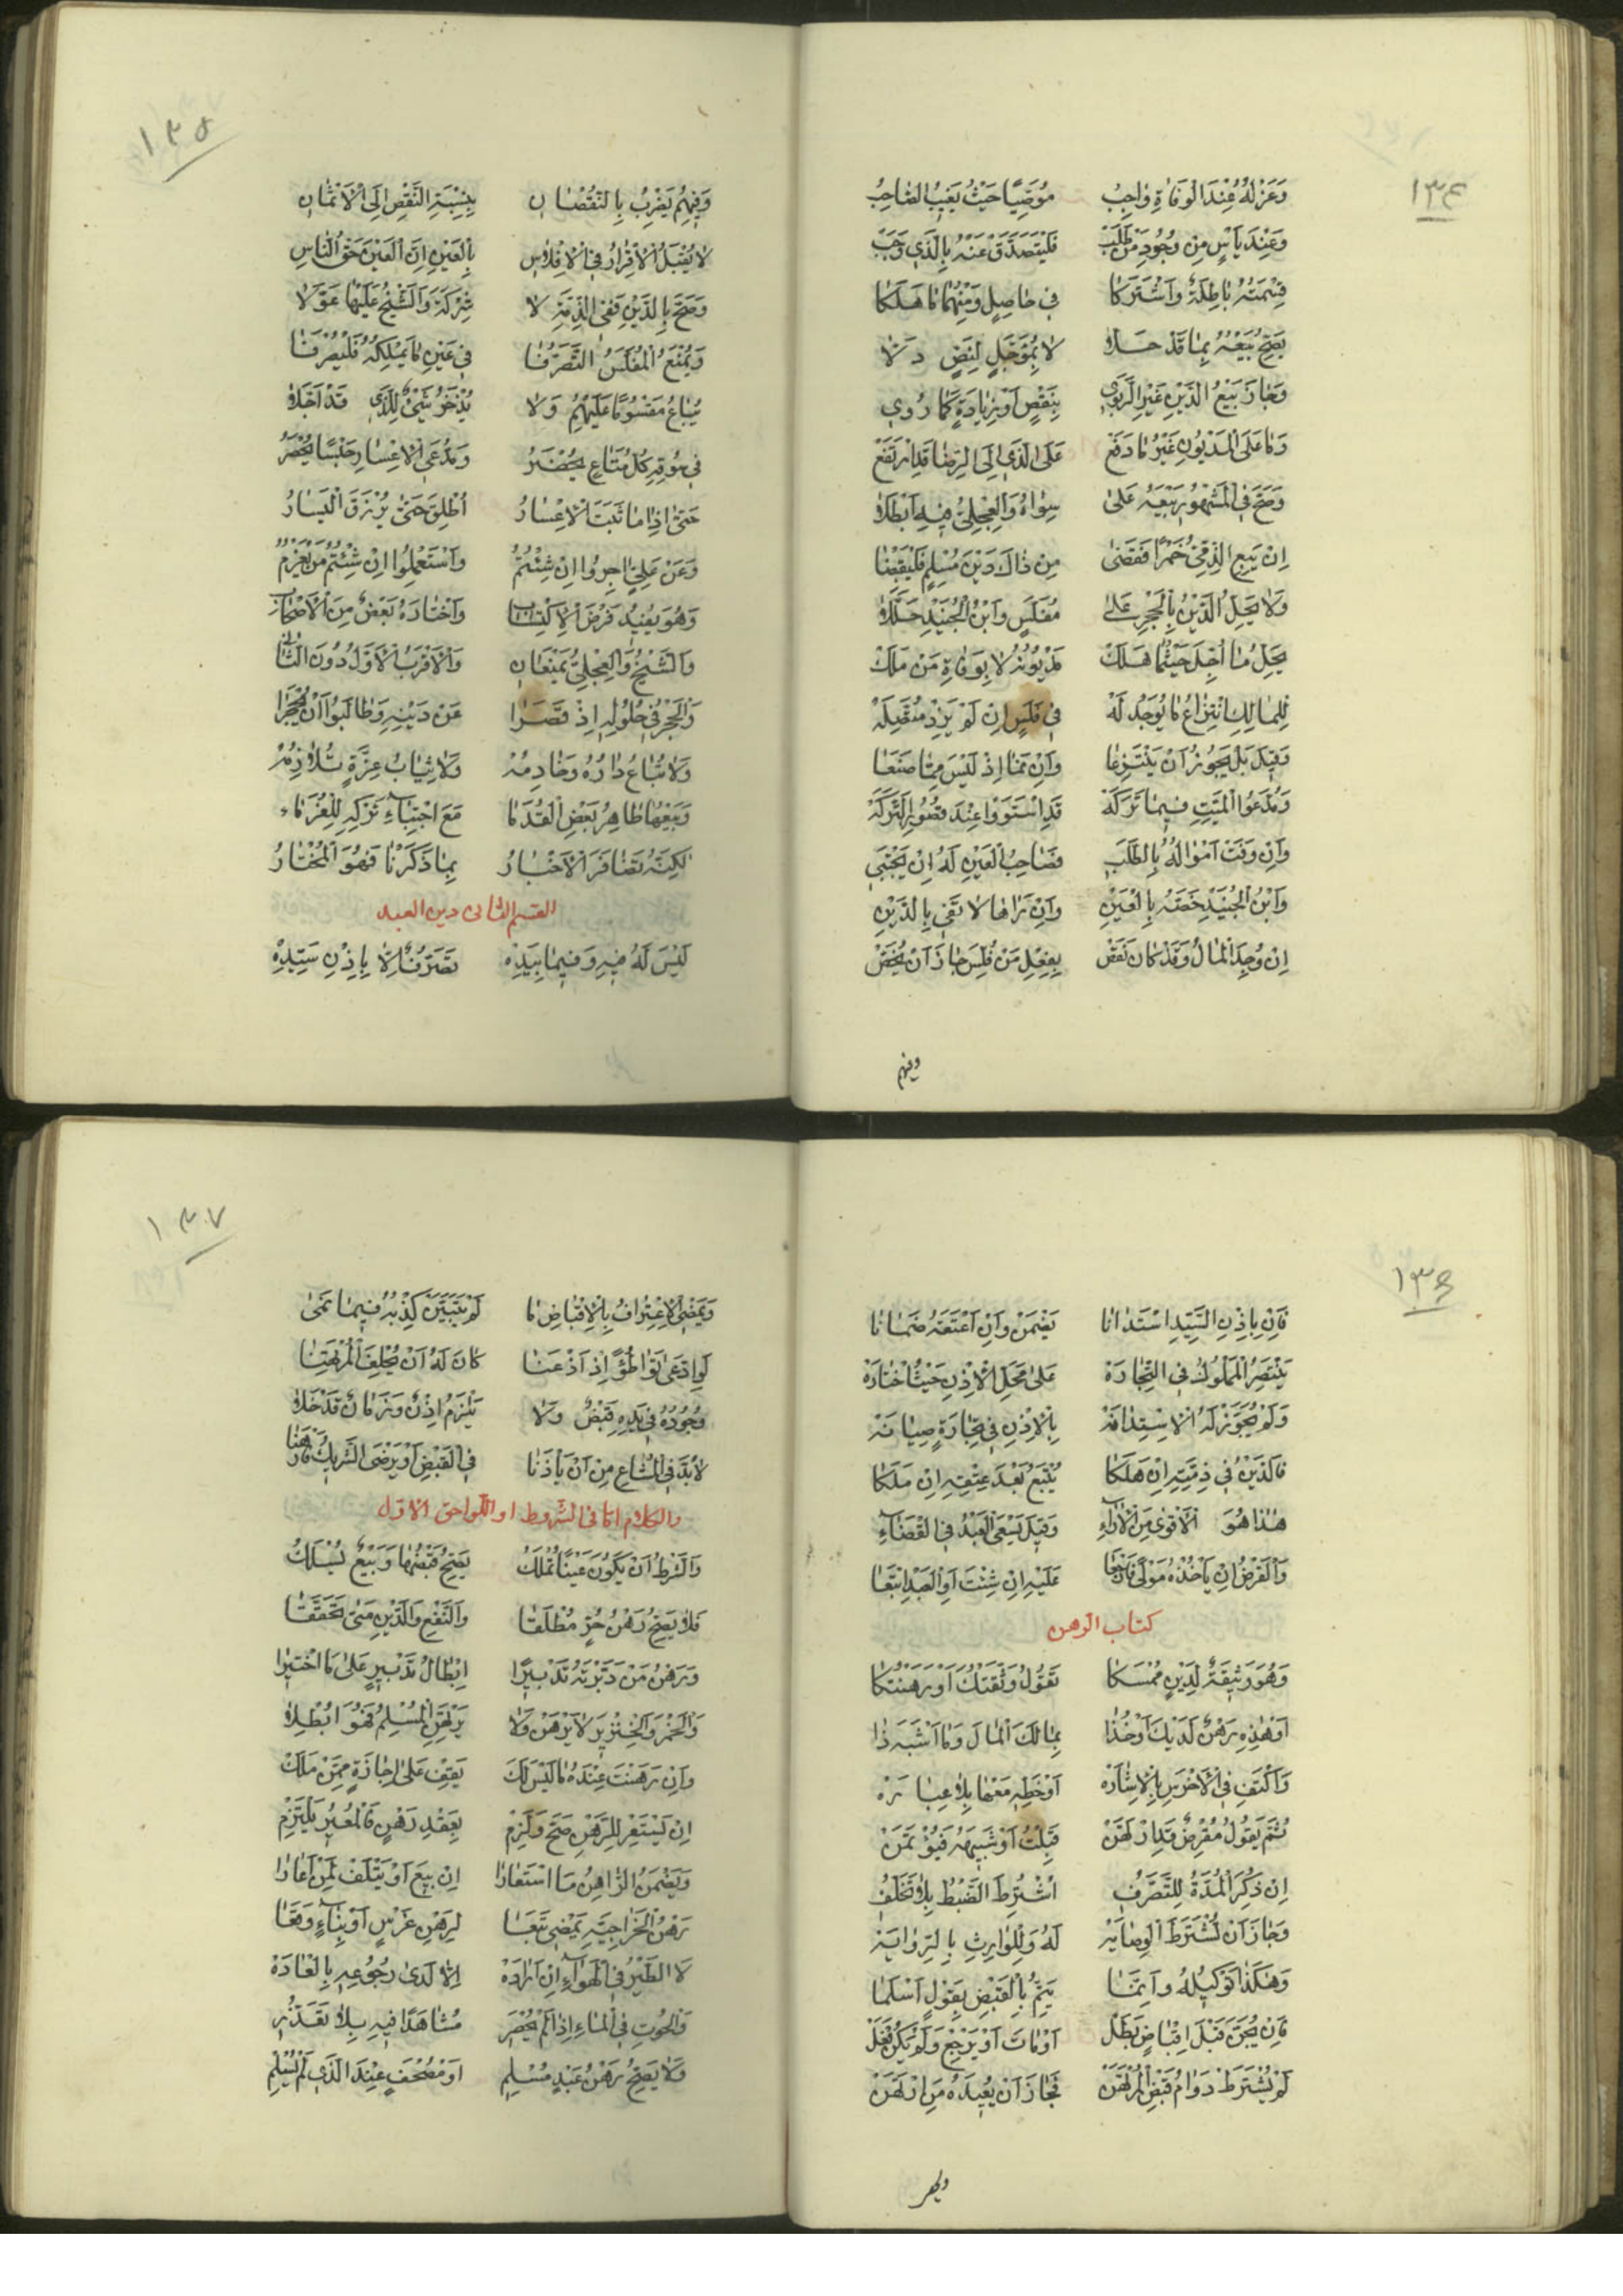 ١٣٤
وَعَزْلُهُ عِنْدَ الْوَفَاةِ وَاجِبُ مُوَصِّيًا حَيْثُ يَغِيبُ الصَّاحِبُ
وَعِنْدَ يَأْسٍ مِن وُجُودِ مَنْ طَلَبْ فَلْيَتَصَدَّقْ عَنْهُ بِالَّذِي وَجَبْ
قِسْمَتُهُ بَاطِلَةٌ وَاشْتَرَكَا فِي حَاصِلٍ وَمِنْهُمَا مَا هَلَكَا
يَصِحُّ بَيْعُهُ بِمَا قَدْ حَلَا لَا بِمُؤَجَّلٍ لِنَصٍّ دَلَّا
وَجَازَ بَيْعُ الدَّيْنِ غَيْرِ الرَّبَوِي بِنَقْصٍ أَوْ زِيَادَةٍ كَمَا رُوِي
وَمَا عَلَى الْمَدْيُونِ غَيْرُ مَا دَفَعْ عَلَى الَّذِي إِلَى الرِّضَا قَدِ ارْتَفَعْ
وَصَحَّ فِي الْمَشْهُورِ بَيْعُهُ عَلَى سِوَاهُ وَالْعِجْلِيُّ فِيهِ أَبْطَلَا
إِنْ يَبِعِ الذِّمِّيُّ خَمْرًا فَقَضَى مِنْ ذَاكَ دَيْنَ مُسْلِمٍ فَلْيَقْبِضَا
وَلَا يَحِلُّ الدَّيْنُ بِالْحَجْرِ عَلَى مُفَلَّسٍ وَابْنُ الْجُنَيْدِ حَلَّلَا
يَحِلُّ مَا أُجِّلَ حَيْثُمَا هَلَكْ مَدْيُونُهُ لَا بِوَفَاةِ مَنْ مَلَكْ
لِلْمَالِكِ انْتِزَاعُ مَا يُوجَدُ لَهْ فِي فَلَسٍ إِنْ لَمْ يَزِدْ مُتَّصِلَهْ
وَقِيلَ بَلْ يَجُوزُ أَنْ يَنْتَزِعَا وَإِنْ نَمَا إِذْ لَيْسَ مِمَّا صَنَعَا
وَمُدَّعُوا الْمَيِّتِ فِيمَا تَرَكَهْ قَدِ اسْتَوَوْا عِنْدَ قُصُورِ التَّرِكَهْ
وَإِنْ وَفَتْ أَمْوَالُهُ بِالطَّلَبِ فَصَاحِبُ الْعَيْنِ لَهُ إِنْ يَجْتَبِي
وَابْنُ الْجُنَيْدِ خَصَّهُ بِالْعَيْنِ وَإِنْ تَرَاهَا لَا تَفِي بِالدَّيْنِ
إِنْ وُجِدَ الْمَالُ وَقَدْ كَانَ نَقَصْ بِفِعْلِ مَنْ فُلِّسَ جَازَ أَنْ يُخَصْ
وفيهم
١٣٥
وَفِيهِمُ يَضْرِبُ بِالنُّقْصَانِ بِنِسْبَةِ النَّقْصِ إِلَى الْأَثْمَانِ
لَا يُقْبَلُ الْإِقْرَارُ فِي الْإِفْلَاسِ بِالْعَيْنِ إِنَّ الْعَيْنَ حَقُّ النَّاسِ
وَصَحَّ بِالدَّيْنِ فَفِي الذِّمَّةِ لَا شِرْكَةَ وَالشَّيْخُ عَلَيْهَا عَوَّلَا
وَيُمْنَعُ الْمُفَلَّسُ التَّصَرُّفَا فِي عَيْنِ مَا يَمْلِكُهُ فَلْيُصْرَفَا
يُبَاعُ مَقْسُومًا عَلَيْهِمُ وَلَا يُذْخَرُ شَيْءٌ لِلَّذِي قَدْ أُجِّلَا
فِي سُوقِهِ كُلُّ مَتَاعٍ يُحْضَرُ وَمُدَّعِي الْإِعْسَارِ حَبْسًا يُحْصَرُ
حَتَّى إِذَا مَا ثَبَتَ الْإِعْسَارُ أُطْلِقَ حَتَّى يُرْزَقَ الْيَسَارُ
وَعَنْ عَلِيٍّ آجِرُوا إِنْ شِئْتُمُ وَاسْتَعْمِلُوا إِنْ شِئْتُمُ
وَهُوَ يُفِيدُ فَرْضَ الِاكْتِسَابِ وَاخْتَارَهُ بَعْضٌ مِنَ الْأَصْحَابِ
وَالشَّيْخُ وَالْعِجْلِيُّ يَمْنَعَانِ وَالْأَقْرَبُ الْأَوَّلُ دُونَ الثَّانِي
وَالْحَجْرُ فِي حُلُولِهِ إِذْ قَصَّرَا عَنْ دَيْنِهِ وَطَالَبُوا أَنْ يُحْجَرَا
وَلَا تُبَاعُ دَارُهُ وَخَادِمُهْ وَلَا ثِيَابُ عِزَّةٍ تُلَازِمُهْ
وَبَيْعُهَا ظَاهِرُ بَعْضِ الْقُدَمَا مَعَ اجْتِبَاءِ تَرْكِهِ لِلْغُرَمَاء
لَكِنَّهُ تَضَافَرَ الْأَخْبَارُ بِمَا ذَكَرْنَا فَهُوَ الْمُخْتَارُ
القسم الثانى دين العبد
لَيْسَ لَهُ فِيهِ وَفِيمَا بِيَدِهْ تَصَرُّفٌ إِلَّا بِإِذْنِ سَيِّدِهْ
١٣٦
فَإِنْ بِإِذْنِ السَّيِّدِ اسْتَدَانَا يَضْمَنْ وَإِنْ أَعْتَقَهُ ضَمَانَا
يَقْتَصِرُ الْمَمْلُوكُ فِي التِّجَارَهْ عَلَى مَحَلِّ الْإِذْنِ حَيْثُ اخْتَارَهْ
وَلَمْ يُجَوَّزْ لَهُ الِاسْتِدَانَهْ بِالْإِذْنِ فِي تِجَارَةٍ صِيَانَهْ
فَالدَّيْنُ فِي ذِمَّتِهِ إِنْ هَلَكَا يُتْبَعُ بَعْدَ عِتْقِهِ إِنْ مَلَكَا
هَذَا هُوَ الْأَقْوَى مِنَ الْآرَاءِ وَقِيلَ يَسْعَى الْعَبْدُ فِي الْقَضَاءِ
وَالْقَرْضُ إِنْ يَأْخُذْهُ مَوْلًى عَلَيْهِ إِنْ شِئْتَ أَوِ الْعَبْدَ اتْبَعَا
كتاب الرهن
وَهُوَ وَثِيقَةٌ لِدَيْنٍ مُمْسَكَا تَقُولُ وَثَّقْتُكَ أَوْ رَهَنْتُكَا
أَوْ هَذِهِ رَهْنٌ لَدَيْكَ أَوْ خُذَا بِمَالِكَ الْمَالَ وَمَا أَشْبَهَ ذَا
وَاكْتَفِ فِي الْأَخْرَسِ بِالْإِشَارَهْ أَوْ خَطِّهِ مَعْهَا بِلَا عِبَارَهْ
ثُمَّ يَقُولُ مُقْرِضٌ قَدِ ارْتَهَنْ قَبِلْتُ أَوْ شَبِيهَهُ فَيُؤْتَمَنْ
إِنْ ذُكِرَ الْمُدَّةُ لِلتَّصَرُّفِ اشْتُرِطَ الضَّبْطُ بِلَا تَخَلُّفِ
وَجَازَ أَنْ تُشْتَرَطَ الْوِصَايَهْ لَهُ وَلِلْوَارِثِ بِالرِّوَايَهْ
وَهَكَذَا تَوْكِيلُهُ وَإِنَّمَا يَتِمُّ بِالْقَبْضِ بِقَوْلٍ أَسْلَمَا
فَإِنْ يُجَنَّ قَبْلَ إِقْبَاضٍ بَطَلْ أَوْ مَاتَ أَوْ يَرْجِعْ وَلَمْ يَكُنْ فَعَلْ
لَمْ يُشْتَرَطْ دَوَامُ قَبْضِ الْمُرْتَهَنْ فَجَازَ أَنْ يُعِيدَهُ مَنِ ارْتَهَنْ
١٣٧
وَيَمْضِي الِاعْتِرَافُ بِالْإِقْبَاضِ مَا لَمْ يَتَبَيَّنْ كِذْبُهُ فِيمَا نَمَى
لَوِ ادَّعَى تَوَاطُؤًا إِذْ أَذْعَنَا كَانَ لَهُ أَنْ يُحْلِفَ الْمُرْتَهِنَا
وُجُودُهُ فِي يَدِهِ قَبْضٌ وَلَا يَلْزَمُ إِذْنٌ وَزَمَانٌ قَدْ خَلَا
لَا بُدَّ فِي الْمُشَاعِ مِنْ أَنْ يَأْذَنَا فِي الْقَبْضِ أَوْ يَرْضَى الشَّرِيكُ
والكلام اما فى الشروط او اللواحق الاول
وَالشَّرْطُ أَنْ يَكُونَ عَيْنًا تُمْلَكُ يَصِحُّ قَبْضُهَا وَبَيْعٌ يُسْلَكُ
فَلَا يَصِحُّ رَهْنُ حُرٍّ مُطْلَقَا وَالنَّفْعِ وَالدَّيْنِ مَتَى تَحَقَّقَا
وَرَهْنُ مَنْ دَبَّرْتَهُ تَدْبِيرًا إِبْطَالُ تَدْبِيرٍ عَلَى مَا اخْتِيرَا
وَالْخَمْرُ وَالْخِنْزِيرُ لَا يَرْهَنُ وَلَا يَرْتَهِنُ الْمُسْلِمُ فَهُوَ أُبْطِلَا
وَإِنْ رَهَنْتَ عِنْدَهُ مَا لَيْسَ لَكَ يَقِفْ عَلَى إِجَازَةٍ مِمَّنْ مَلَكْ
إِنْ يَسْتَعِرْ لِلرَّهْنِ صَحَّ وَلَزِمْ بِعَقْدِ رَهْنٍ فَالْمُعِيرُ يَلْتَزِمْ
وَيَضْمَنُ الرَّاهِنُ مَا اسْتَعَارَا إِنْ بِيعَ أَوْ يَتْلَفْ لِمَنْ أَعَارَا
رَهْنُ الْخَرَاجِيَّةِ يَمْضِي تَبَعَا لِرَهْنِ غَرْسٍ أَوْ بِنَاءٍ وَقَعَا
لَا الطَّيْرُ فِي الْهَوَاءِ إِنْ أَرَادَهْ إِلَّا لَدَى رُجُوعِهِ بِالْعَادَهْ
وَالْحُوتِ فِي الْمَاءِ إِذَا لَمْ يُحْصَرِ مُشَاهَدًا فِيهِ بِلَا تَعَذُّرِ
وَلَا يَصِحُّ رَهْنُ عَبْدٍ مُسْلِمٍ أَوْ مُصْحَفٍ عِنْدَ الَّذِي لَمْ يُسْلِمِ